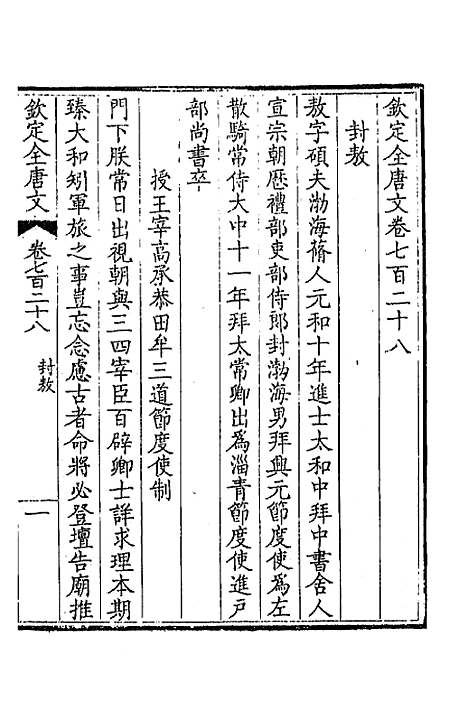 欽定全唐文卷七百二十八
封敖
敖字碩夫渤海蓨人元和十年進士太和中拜中書舍人
宣宗朝歷禮部吏部侍郎封渤海男拜興元節度使爲左
散騎常侍大中十一年拜太常卿出爲淄青節度使進戸
部尚書卒
授王宰高承恭田牟三道節度使制
門下朕常日出視朝與三四宰臣百辟卿士詳求理本期
臻大和矧軍旅之事豈忘念慮古者命將必登壇告廟推
欽定全唐文
卷七百二十八
封敖
一